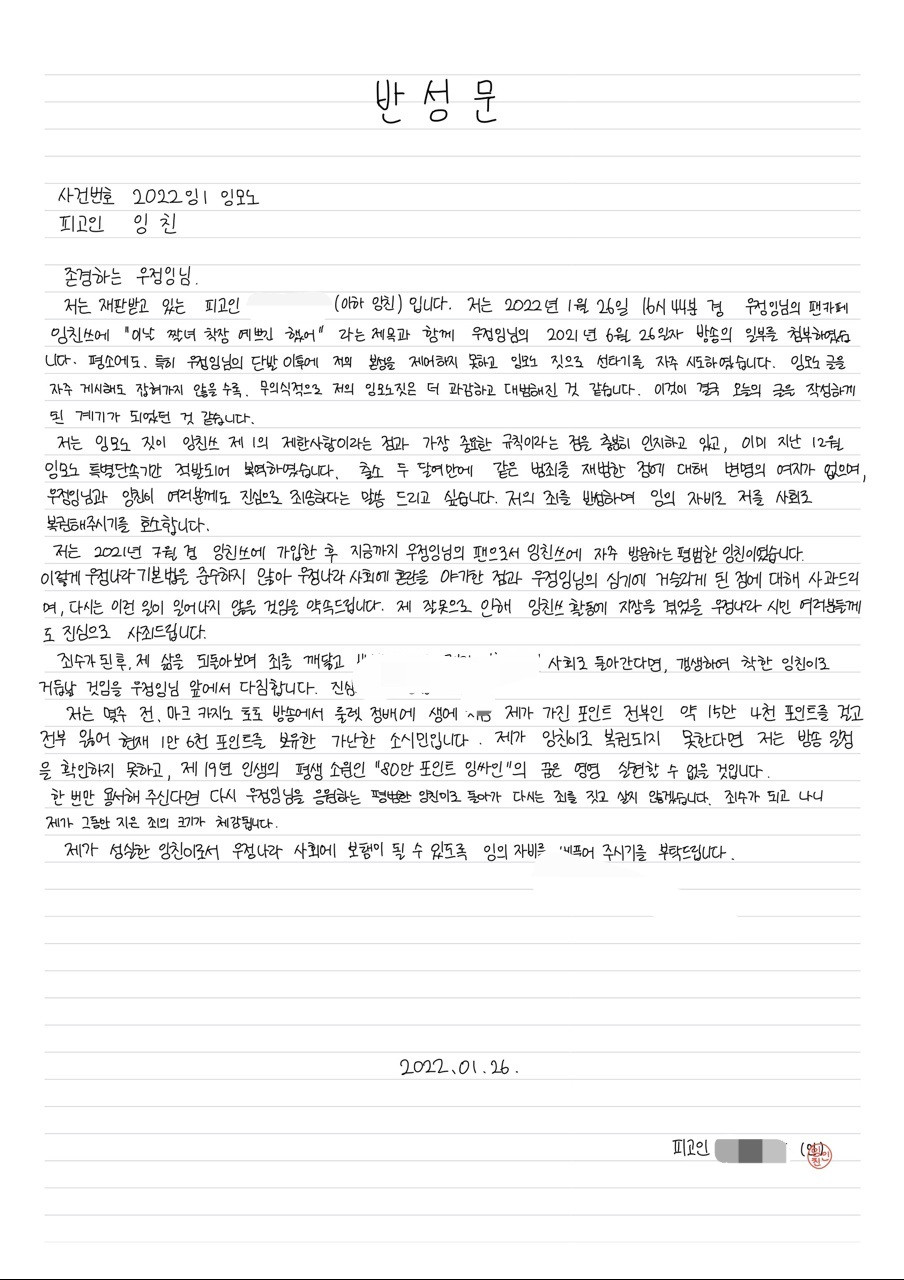 반성문
사건번호 2022잉1 잉모노
피고인 잉친
존경하는 우정잉님.
저는 재판받고 있는 피고인 (이하 잉친) 입니다. 저는 2022년 1월 26일 16시 44분 경 우정잉님의 팬카페
잉친쓰에 "이날 짠녀 착장 예쁘긴 했어" 라는 제목과 함께 우정잉님의 2021년 6월 26일자 방송의 일부를 첨부하였습
니다. 평소에도, 특히 우정잉님의 단발 이후에 저의 본성을 제어하지 못하고 잉모노 짓으로 선타기를 자주 시도하였습니다. 잉모노 글을
자주 게시해도 잡혀가지 않을수록, 무의식적으로 저의 잉모노짓은 더 과감하고 대범해진 것 같습니다. 이것이 결국 오늘의 글을 작성하게
된 계기가 되었던 것 같습니다.
저는 잉모노 짓이 잉친쓰 제 1의 제한사항이라는 점과 가장 중요한 규칙이라는 점을 충분히 인지하고 있고, 이미 지난 12월
잉모노 특별단속기간 적발되어 복역하였습니다. 출소 두 달여만에 같은 범죄를 재범한 점에 대해 변명의 여지가 없으며,
우정잉님과 잉친이 여러분께도 진심으로 죄송하다는 말씀 드리고 싶습니다. 저의 죄를 반성하며 잉의 자비로 저를 사회로
복권해주시기를 호소합니다.
저는 2021년 7월 경 잉친쓰에 가입한 후 지금까지 우정잉님의 팬으로서 잉친쓰에 자주 방문하는 평범한 잉친이였습니다.
이렇게 우정나라 기본법을 준수하지 않아 우정나라 사회에 혼란을 야기한 점과 우정잉님의 심기에 거슬리게 된 점에 대해 사과드리
며, 다시는 이런 일이 일어나지 않을 것임을 약속드립니다. 제 잘못으로 인해 잉친쓰 활동에 지장을 겪었을 우정나라 시민 여러분들께
도 진심으로 사죄드립니다.
죄수가 된 후, 제 삶을 되돌아보며 죄를 깨달고 사회로 돌아간다면, 갱생하여 착한 잉친이로
거듭날 것임을 우정잉님 앞에서 다짐합니다. 진심
저는 몇주 전, 마크 카지노 토토 방송에서 룰렛 정배에 생에 제가 가진 포인트 전부인 약 15만 4천 포인트를 걸고
전부 잃어 현재 1만 6천 포인트를 보유한 가난한 소시민입니다. 제가 잉친이로 복권되지 못한다면 저는 방송 일정
을 확인하지 못하고, 제 19년 인생의 평생 소원인 "80만 포인트 잉싸인"의 꿈은 영영 실현할 수 없을 것입니다.
한 번만 용서해 주신다면 다시 우정잉님을 응원하는 평범한 잉친이로 돌아가 다시는 죄를 짓고 살지 않겠습니다. 죄수가 되고 나니
제가 그동안 지은 죄의 크기가 체감됩니다.
제가 성실한 잉친이로서 우정나라 사회에 보탬이 될 수 있도록 잉의 자비를 베풀어 주시기를 부탁드립니다.
2022.01.26.
피고인 (인)